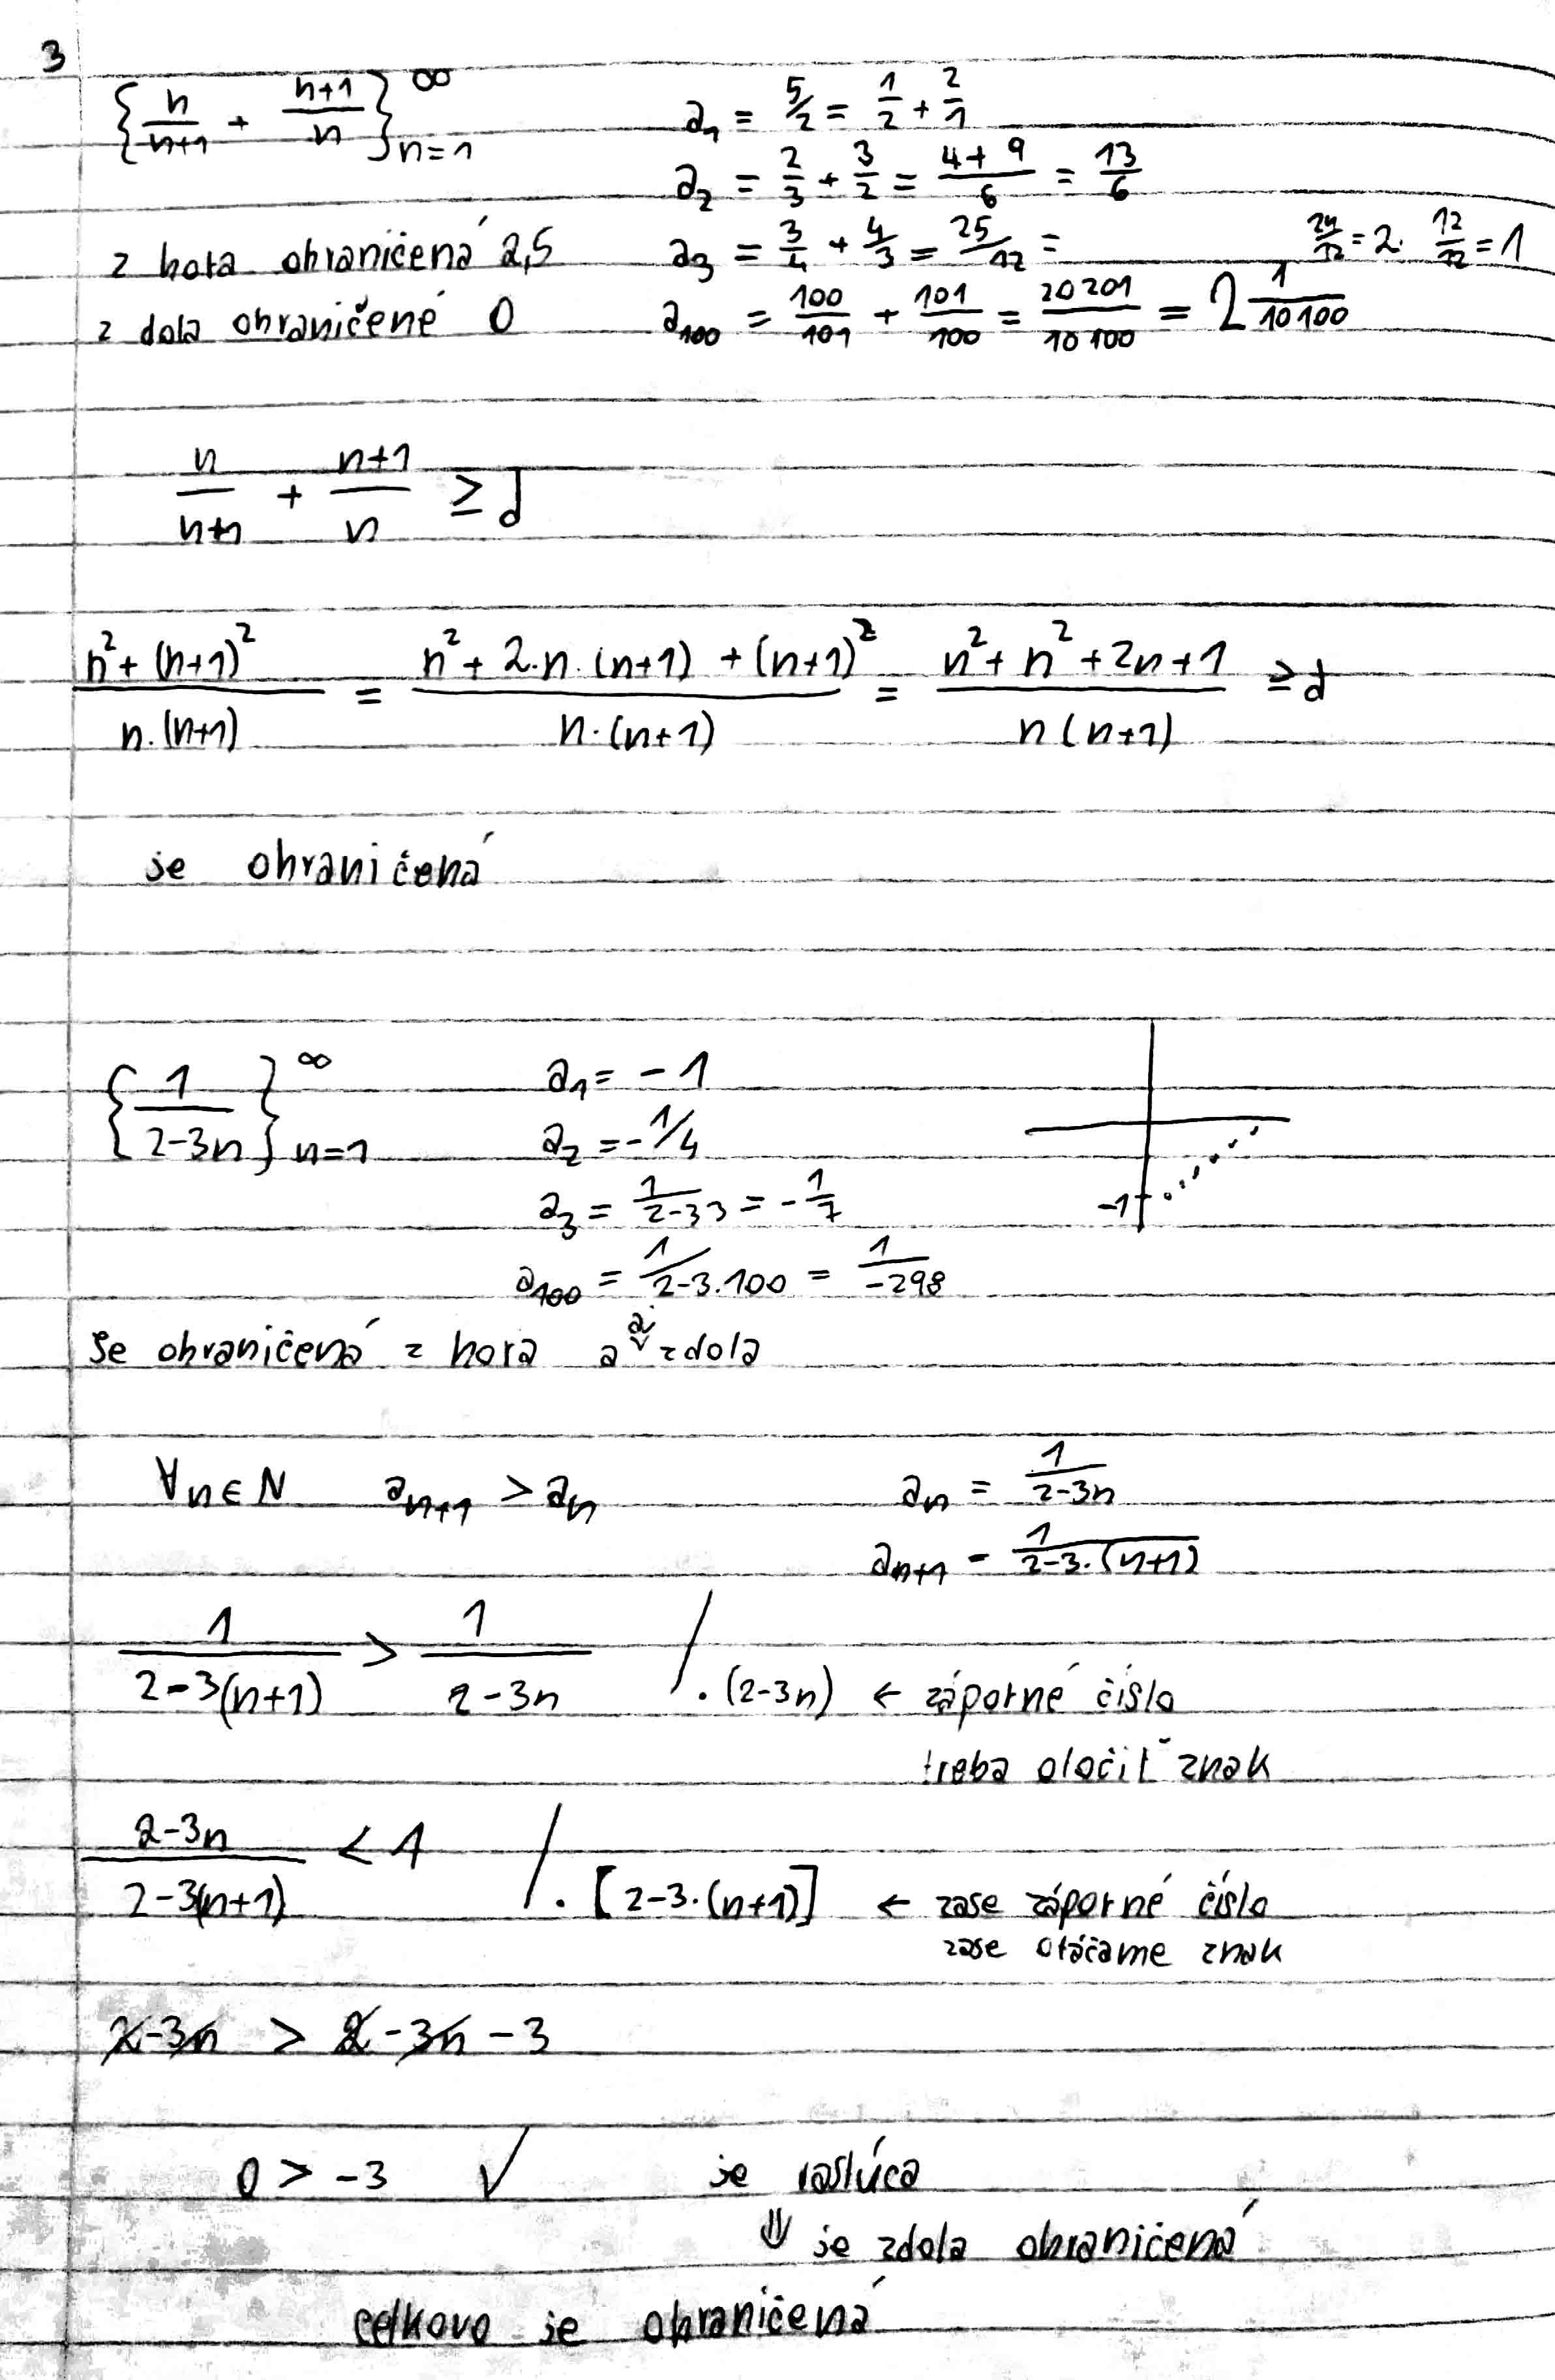 3
{n/n+1 + n+1/n}∞ n=1
a₁ = 5/2 = 1/2 + 2/1
a₂ = 2/3 + 3/2 = 4+9/6 = 13/6
z hora ohraničená 2,5
a₃ = 3/4 + 4/3 = 25/12 =
24/12 = 2. 12/12 = 1
z dola ohraničené 0
a₁₀₀ = 100/101 + 101/100 = 20201/10100 = 2 1/10100
n/n+1 + n+1/n ≥ d
n²+(n+1)²/n.(n+1) = n²+2.n.(n+1)+(n+1)²/n.(n+1) = n²+n²+2n+1/n(n+1) ≥ d
je ohraničená
{1/2-3n}∞ n=1
a₁ = -1
a₂ = -1/4
a₃ = 1/2-33 = -1/7
-1
a₁₀₀ = 1/2-3.100 = 1/-298
je ohraničená z hora a aj zdola
∀n∈N aₙ₊₁ > aₙ
aₙ = 1/2-3n
aₙ₊₁ = 1/2-3.(n+1)
1/2-3(n+1) > 1/2-3n /.(2-3n) ← záporné číslo
treba otočiť znak
2-3n/2-3(n+1) < 1 /.[2-3.(n+1)] ← zase záporné číslo
zase otáčame znak
2-3n > 2-3n-3
0 > -3 ✓ je rastúca
⇓ je zdola ohraničená
celkovo je ohraničená